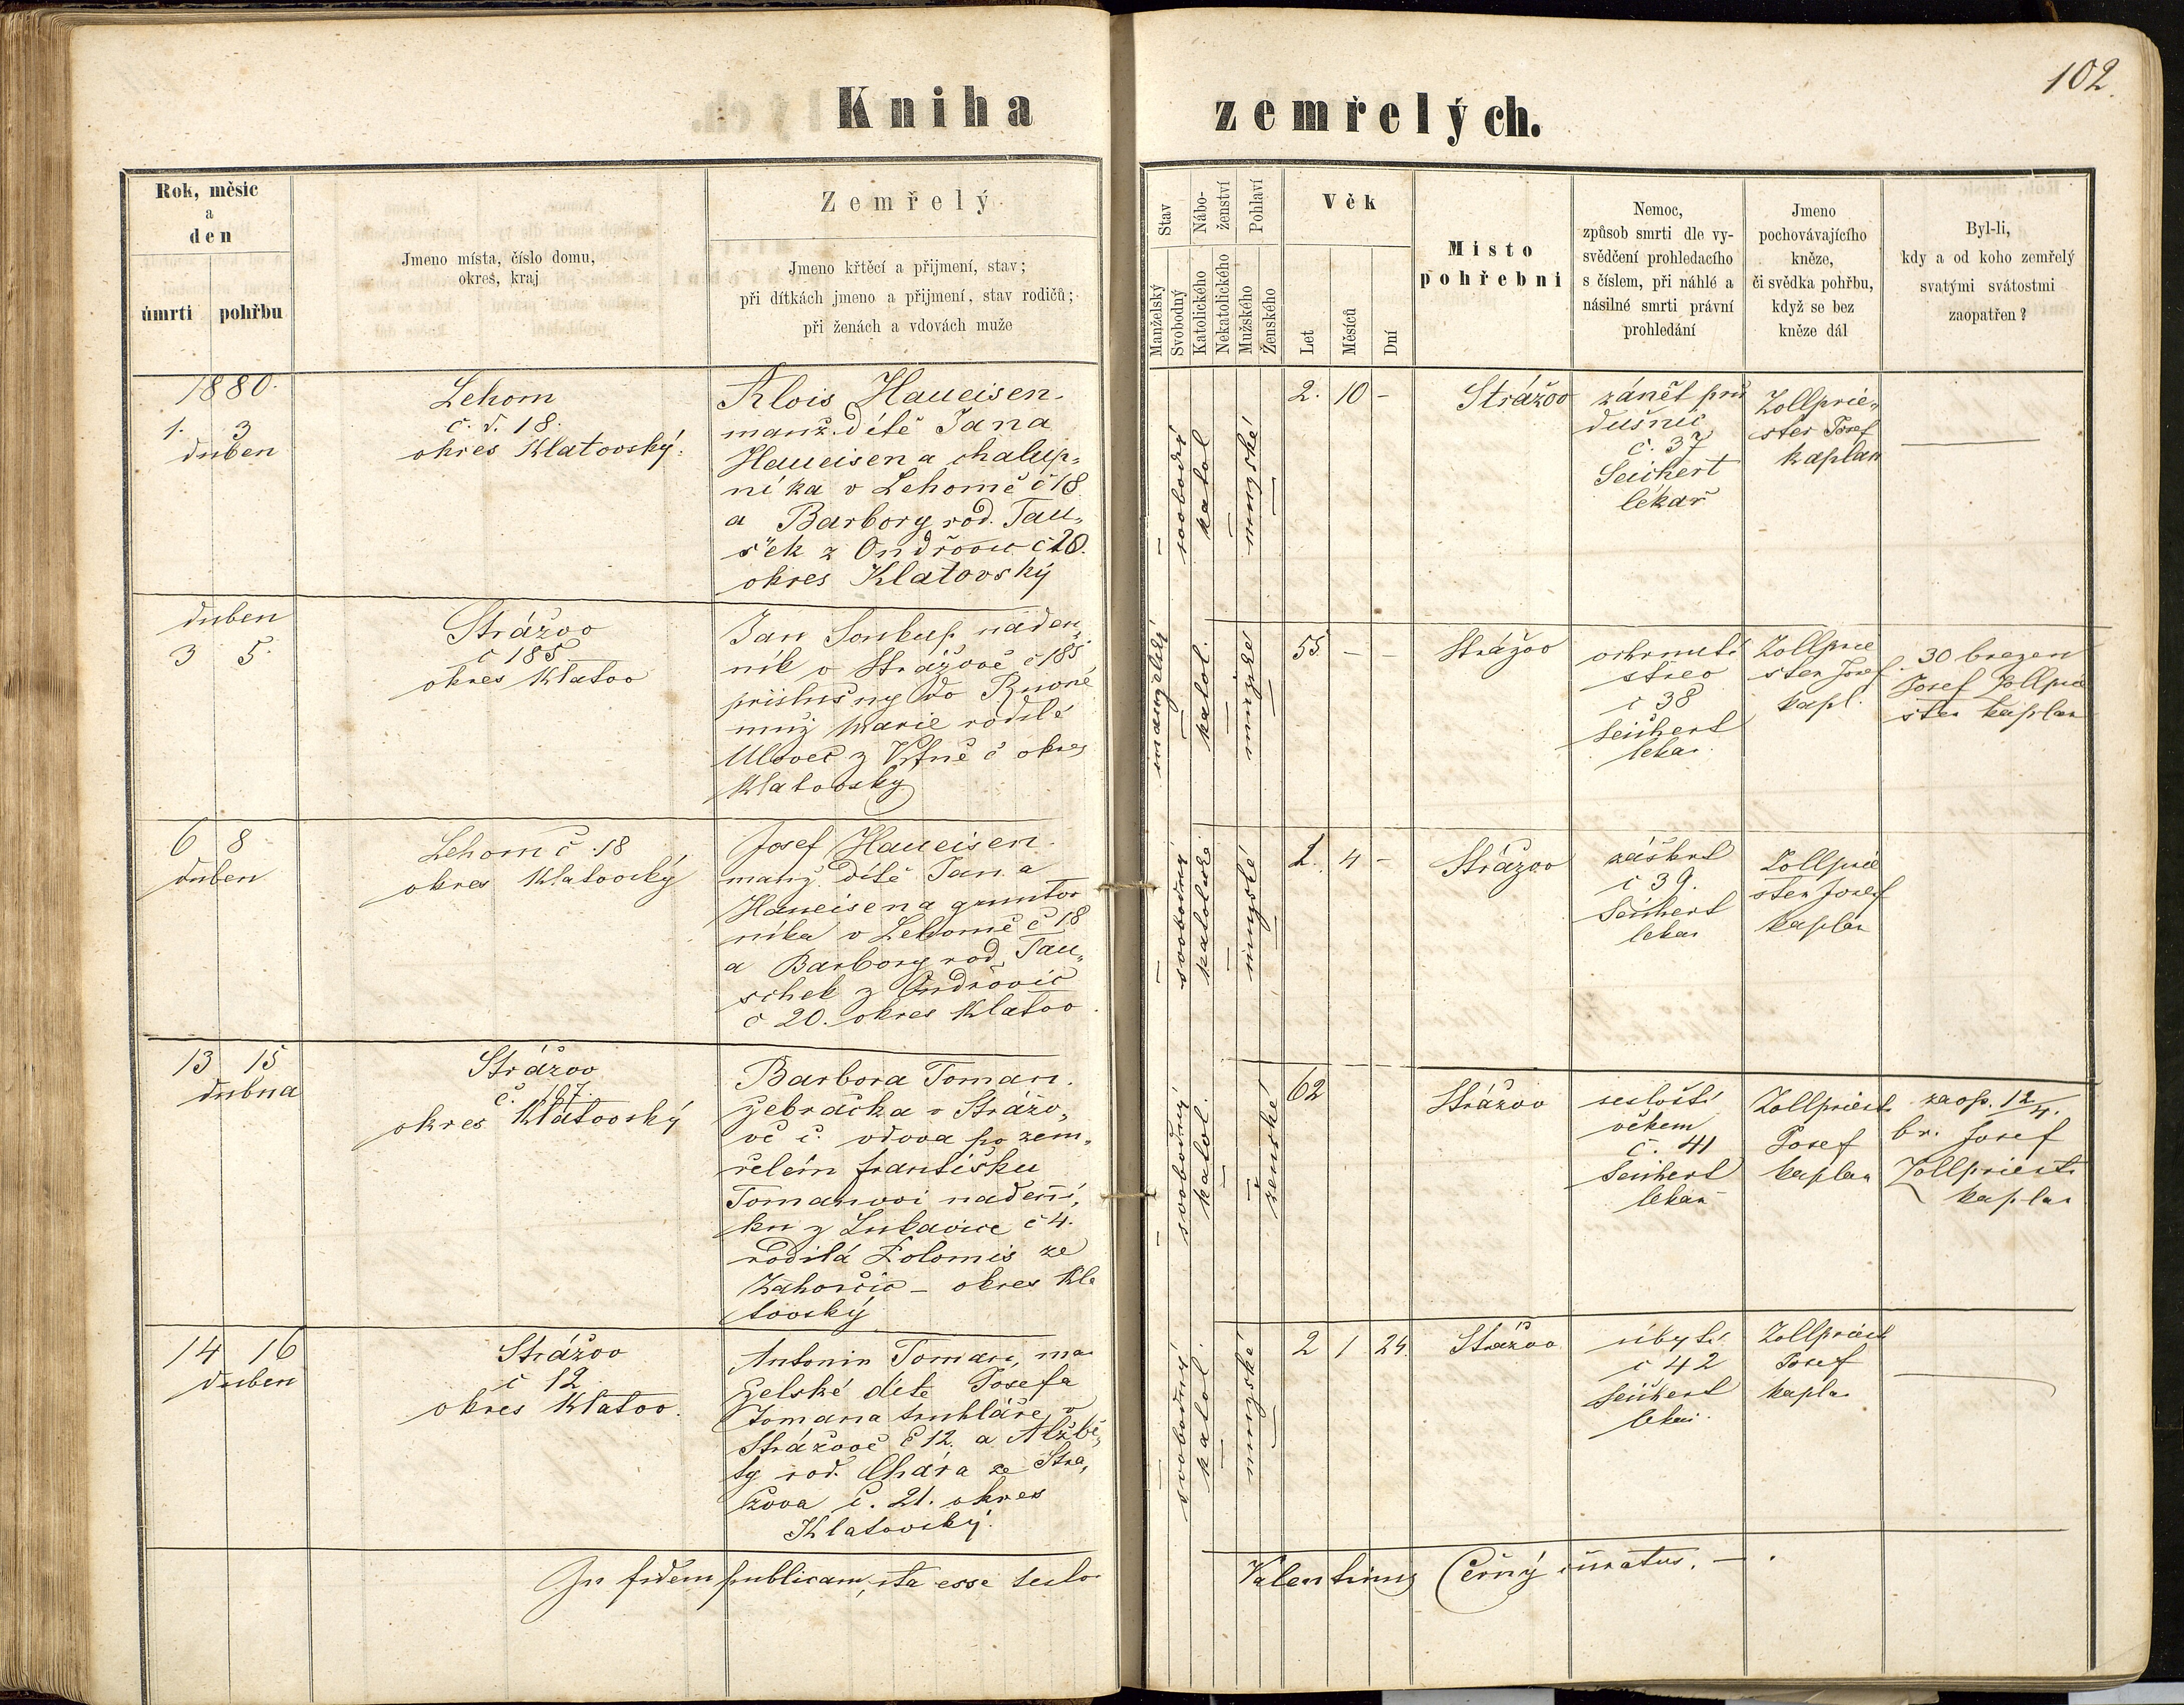 102.
Kniha zemřelých.
Rok, měsíc
a
den
úmrtí
pohřbu
Jmeno místa, číslo domu,
okres, kraj
Zemřelý
Jmeno křtěcí a přijmení, stav;
při dítkách jmeno a přijmení, stav rodičů;
při ženách a vdovách muže
Stav
Manželský
Svobodný
Nábo-
ženství
Katolického
Nekatolického
Pohlaví
Mužského
Ženského
Věk
Let
Měsíců
Dní
Místo
pohřební
Nemoc,
způsob smrti dle vy-
svědčení prohledacího
s číslem, při náhlé a
násilné smrti právní
prohledání
Jmeno
pochovávajícího
kněze,
či svědka pohřbu,
když se bez
kněze dál
Byl-li,
kdy a od koho zemřelý
svatými svátostmi
zaopatřen?
1880.
1. 3
duben
Lehom
č. d. 18.
okres Klatovský.
Alois Haueisen.
manž. dítě Jana
Haueisena chalup„
níka v Lehomě č 18
a Barbory rod. Tau„
šek z Ondřovic č 20.
okres Klatovský
–
svobodný
katol
–
mužské
–
2. 10 –
Strážov
zánět prů
dušnic
č. 37
Seichert
lékař
Zollprie„
ster Josef
kaplan
—
duben
3 5.
Strážov
č 185
okres Klatov
Jan Soukup náden„
ník v Strážově č 185
příslušny do
muž Marie rodilé
z č okres
Klatovsky
manželský
–
katol.
–
mužske
–
55 – –
Strážov
ochrnutí
střev
č 38
Seichert
lekar.
Zollprie
ster Josef
kapl.
30 brezen
Josef Zollprie
ster kaplan
6 8
duben
Lehom č. 18
okres Klatovský
Josef Haueisen.
manž. dítě Jana
Haueisena gruntov
níka v Lehomě č 18
a Barbory rod. Tau„
schek z Ondrovic
č 20. okres Klatov
–
svobodný
katolické
–
mužské
–
2. 4 –
Strážov
záškrt
č 39.
Seichert
lekar
Zollprie
ster Josef
kaplan
13 15
dubna
Strážov
č. 167.
okres Klatovský
Barbora Toman.
žebračka v Strážo„
vě č. vdova po zem„
řelém Františku
Tomanovi nadenní„
ku z Lukavice č 4.
rodilá Kolomis ze
Zahorčic – okres Kla
tovský
–
svobodný
katol.
–
–
ženské
62
Strážov
sešlostí
věkem
č. 41
Seichert
lekar
Zollpriest.
Josef
kaplan
zaop. 12/4.
br. Josef
Zollpriest.
kaplan
14 16
duben
Strážov
č 12
okres Klatov.
Antonin Toman, man
želské dite Josefa
Tomana truhláře v
Strážově č 12. a Alžbě„
ty rod. Chára ze Stra„
žova č. 21. okres
Klatovský.
–
svobodný
katol.
–
mužské
–
2 1 24.
Strážov
úbytí
č 42
Seichert
lekar.
Zollpriest
Josef
kaplan
—
In fidem publicam, ita esse testor Valentinus Černý curatus. —.